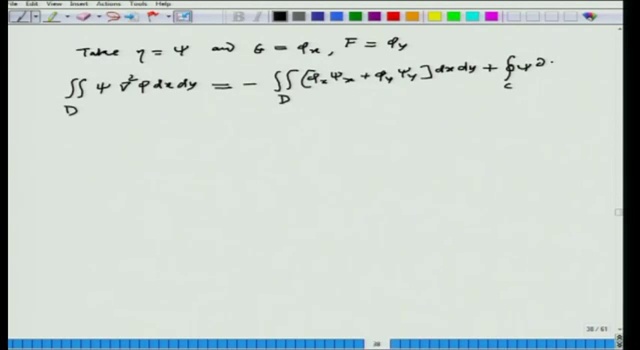 File Edit View Insert Actions Tools Help
Take η = ψ and G = φₓ, F = φᵧ
∬_D ψ ∇²φ dx dy = − ∬_D [φₓψₓ + φᵧψᵧ] dx dy + ∮_c ψ ∂
38 / 61
38